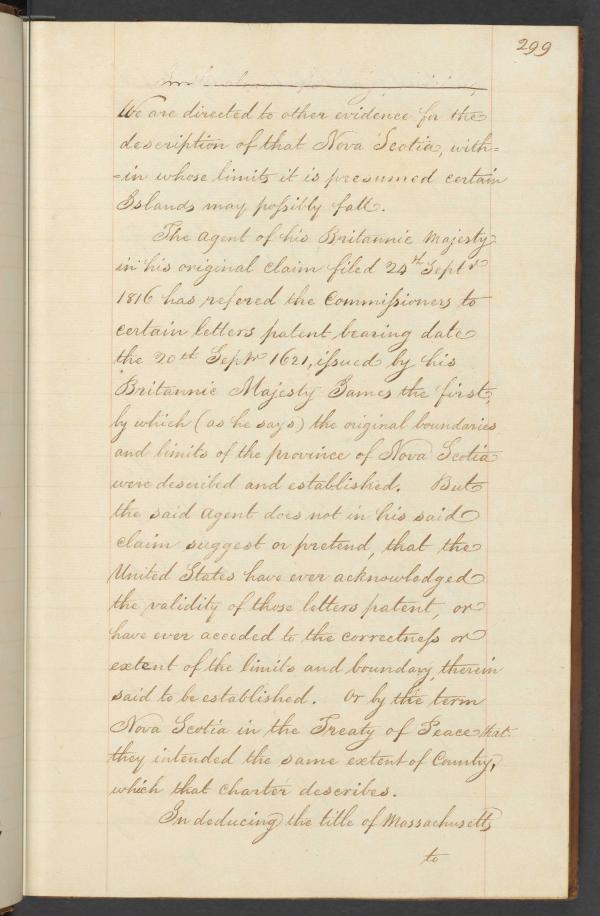 299
We are directed to other evidence for the
description of that Nova Scotia, with=
=in whose limits it is presumed certain
Islands may possibly fall.
The agent of his Britannic Majesty
in his original claim filed 24th Septr
1816 has refered the Commissioners to
certain letters patent bearing date
the 20th Sepbr 1621, issued by his
Britannic Majesty James the first,
by which (as he says) the original boundaries
and limits of the province of Nova Scotia
were described and established. But
the said agent does not in his said
claim suggest or pretend, that the
United States have ever acknowledged
the validity of those letters patent, or
have ever acceded to the correctness or
extent of the limits and boundary, therein
said to be established. Or by the term
Nova Scotia in the Treaty of Peace that
they intended the same extent of Country,
which that charter describes.
In deducing the title of Massachusetts
to